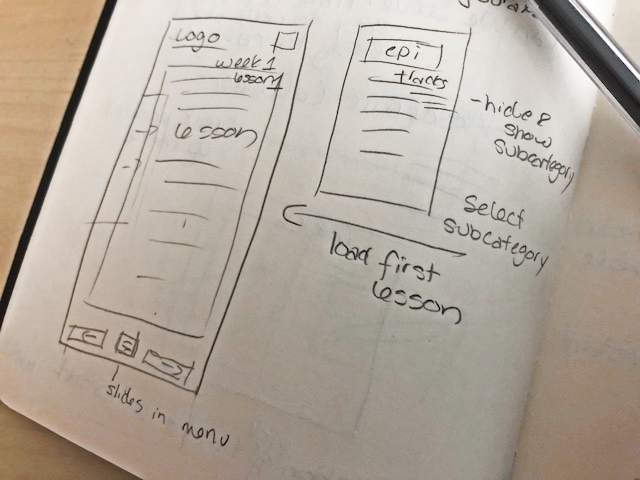 Logo
week 1
lesson 1
lesson
slides in menu
epi
tracks
- hide &
show
subcategory
select
subcategory
load first
lesson